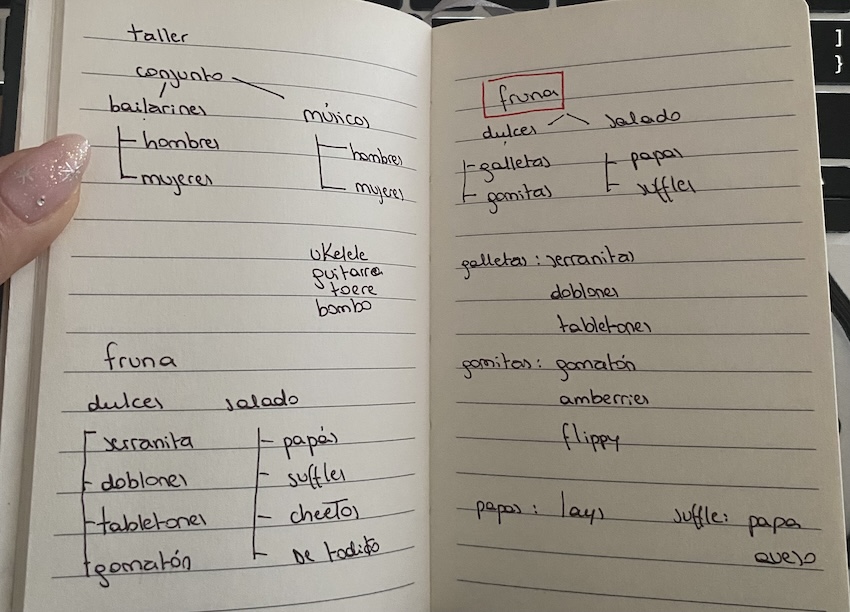 taller
conjunto
bailarines músicos
hombres hombres
mujeres mujeres
ukelele
guitarra
toere
bombo
fruna
dulces salado
serranita papás
doblones suffles
tabletones cheetos
gomatón De todito
fruna
dulces salado
galletas papas
gomitas suffles
galletas: serranitas
doblones
tabletones
gomitas: gomatón
amberries
flippy
papas: lays suffle: papa
queso